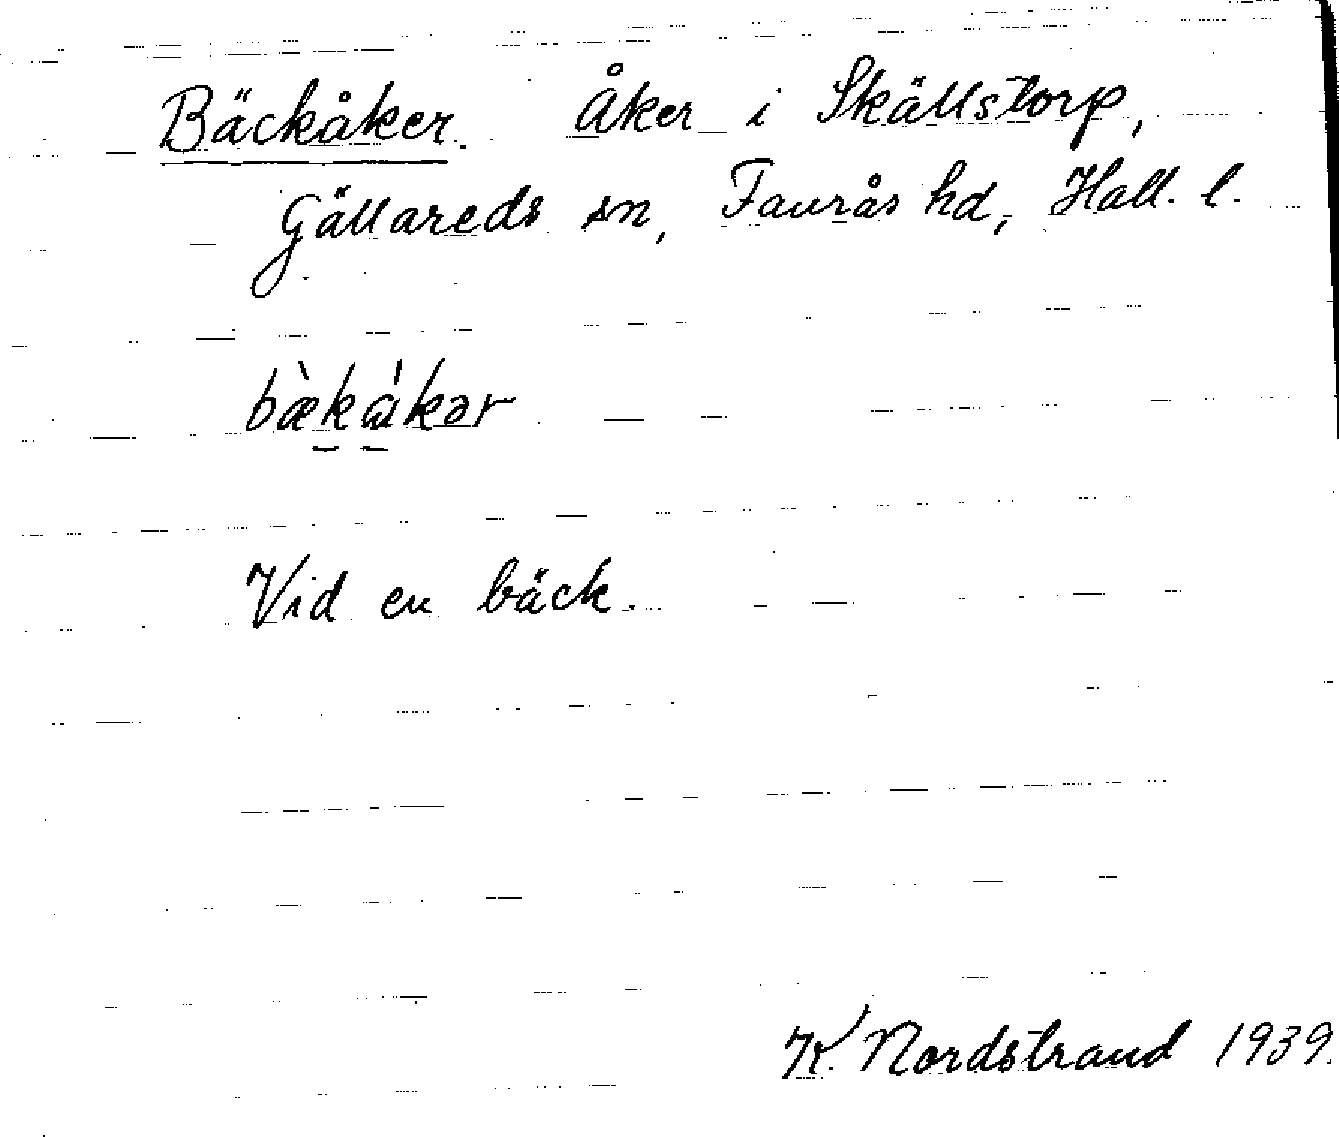 Bäckåker. Åker i Skällstorp,
Gällareds sn, Faurås hd, Hall. l.
bæ̀kåkər
Vid en bäck.
K. Nordstrand 1939.